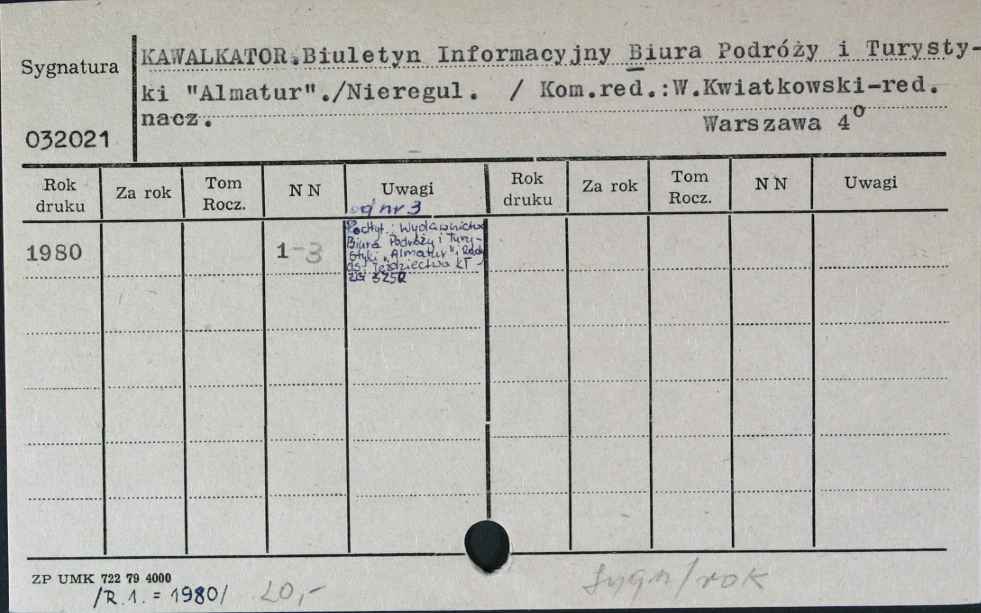 Sygnatura
032021
KAWALKATOR.Biuletyn Informacyjny Biura Podróży i Turysty-
ki "Almatur"./Nieregul. / Kom.red.:W.Kwiatkowski-red.
nacz.
Warszawa 4°
Rok druku Za rok Tom Rocz. NN Uwagi Rok druku Za rok Tom Rocz. NN Uwagi
od nr 3
1980 1-3
Podtyt.: Wydawnictwo
Biura Podróży i Tury-
styki "Almatur" i
Jeździectwa
ZG SZSP
ZP UMK 722 79 4000
/R.1.=1980/ 20,-
Sygn/rok